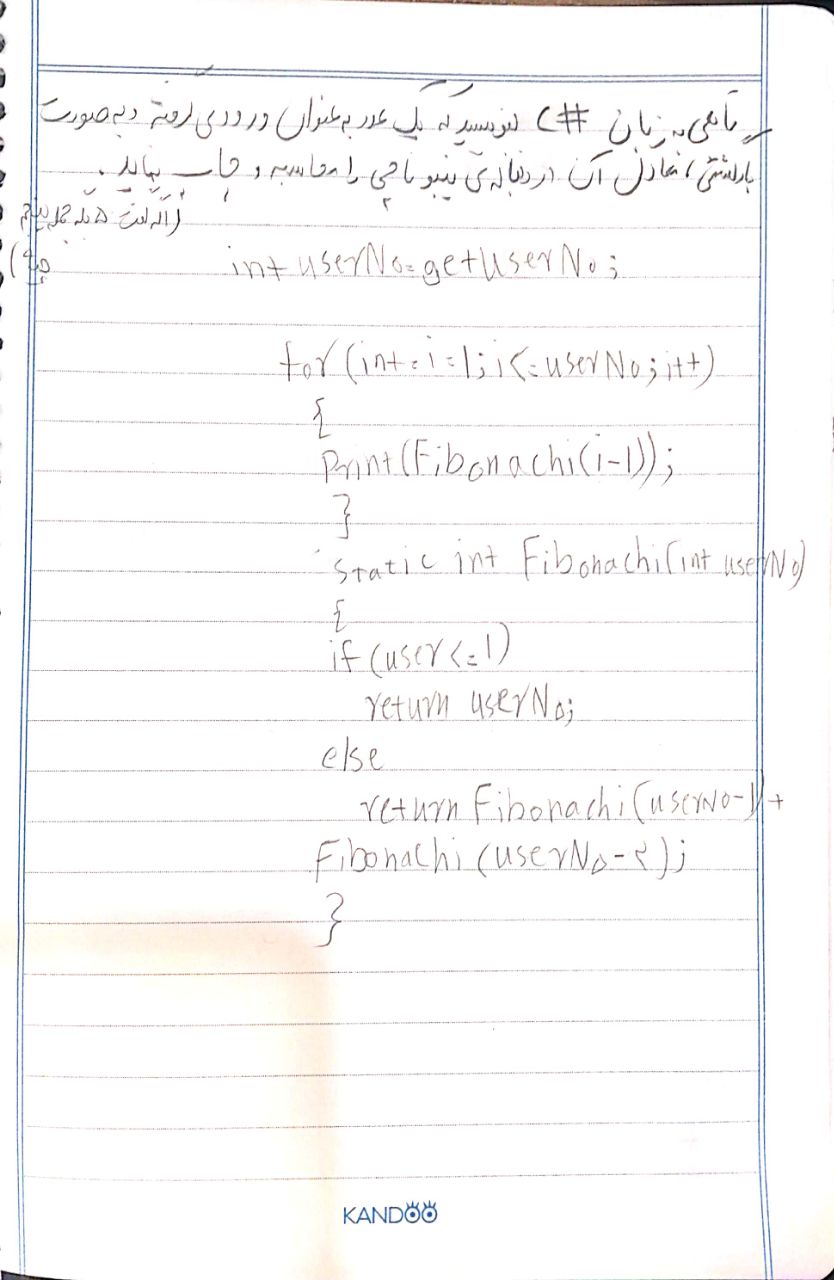 تابعی به زبان C# بنویسید که یک عدد به عنوان ورودی گرفته و به صورت
بازگشتی، معادل آن در دنباله‌ی فیبوناچی را محاسبه و چاپ نماید.
(اگه گفت ۵ بله جمله پنجم
int userNo=getUserNo;
for (int i=1; i<=userNo; i++)
{
Print(Fibonachi(i-1));
}
static int Fibonachi(int userNo)
{
if (user<=1)
return userNo;
else
return Fibonachi(userNo-1)+
Fibonachi(userNo-2);
}
KANDOO